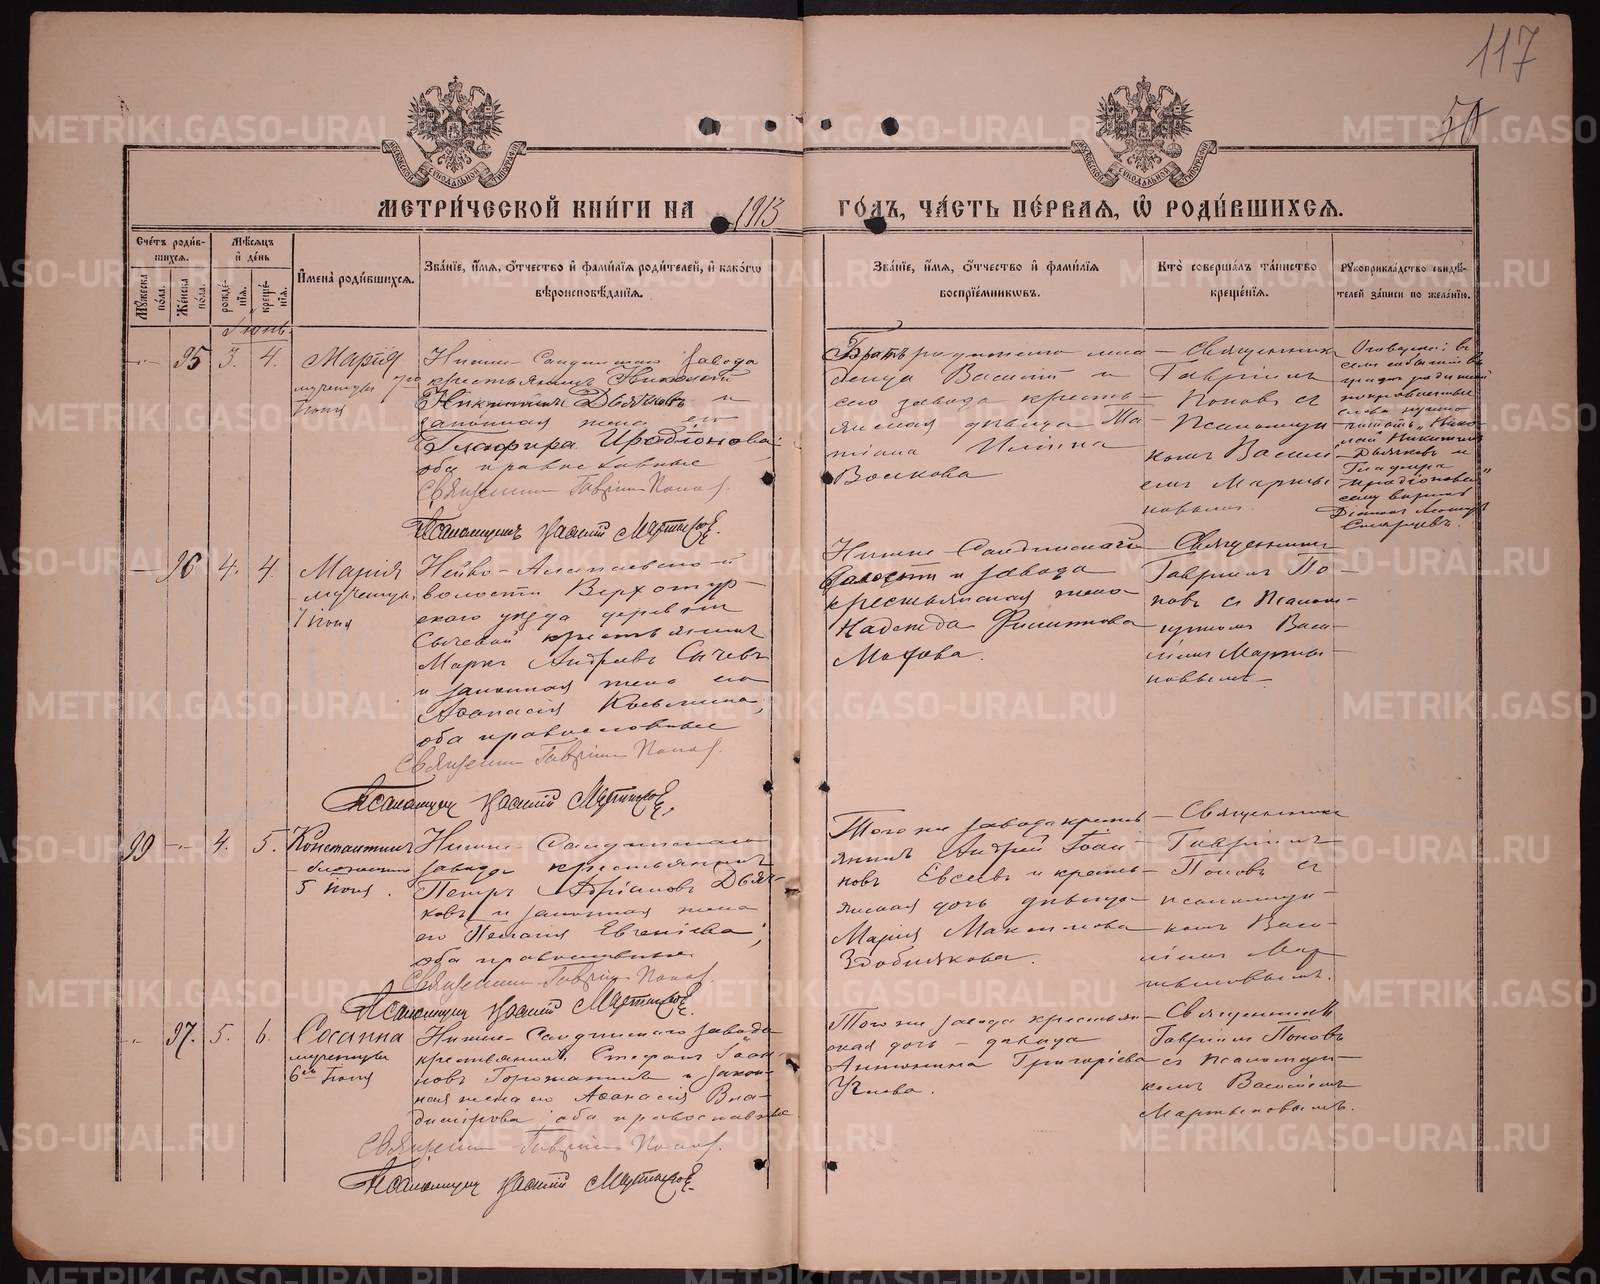 117
50
МЕТРИ́ЧЕСКОЙ КНИ́ГИ НА 1913 ГО́ДЪ, ЧА́СТЬ ПЕ́РВАЯ, Ѡ РОДИ́ВШИХСЯ.
Сче́тъ роди́в-
шихся.
Му́жеска по́ла.
Же́нска по́ла.
Мѣ́сяцъ
и́ де́нь
рожде́-
нія.
креще́-
нія.
И҆мена̀ роди́вшихся.
Зва́ніе, и҆́мя, ѻ҆́тчество и҆ фами́лія роди́телей, и҆ како́гѡ
вѣроисповѣ́данія.
Зва́ніе, и҆́мя, ѻ҆́тчество и҆ фами́лія
воспріе́мникѡвъ.
Кто̀ соверша́лъ та́инство
креще́нія.
Рꙋкоприкла́дство свидѣ́-
телей за́писи по жела́нію.
Іюнь.
95 3. 4.
Марія
мученицы
Іюня
Нижне-Салдинскаго завода
крестьянинъ Николай
Никитинъ Дьячковъ и
законная жена его
Глафира Иродіонова;
оба православные
Священникъ Гавріилъ Поповъ.
Псаломщикъ Василій Мартыновъ.
Братъ родителя мла-
денца Василій и
сего завода кресть-
янская дѣвица Та-
тіана Ильина
Волкова
Священникъ
Гавріилъ
Поповъ съ
Псаломщи-
комъ Васи-
емъ Марты-
новымъ.
Оговорка: въ
Дьячковъ и
Глафира
Иродіонова"
96 4. 4.
Марія
мученицы
7 Іюня
Нейво-Алапаевской
волости Верхотур-
скаго уѣзда деревни
Сычевой крестьянинъ
Маркъ Андреевъ Сычевъ
и законная жена его
Аѳанасія Козьмина;
оба православные
Священникъ Гавріилъ Поповъ.
Псаломщикъ Василій Мартыновъ.
Нижне-Салдинской
волости и завода
крестьянская жена
Надежда Филиппова
Священникъ
Гавріилъ По-
повъ съ Псалом-
щикомъ Васи-
ліемъ Марты-
новымъ.
99 4. 5.
Константинъ
5 Іюня.
Нижне-Салдинскаго
завода крестьянинъ
Петръ Адріановъ Дьяч-
ковъ и законная жена
его Пелагія Евгеніева;
оба православные
Священникъ Гавріилъ Поповъ
Псаломщикъ Василій Мартыновъ.
Того же завода кресть-
янинъ Андрей Іоан-
новъ Евсеевъ и кресть-
янская дочь дѣвица
Марія Максимова
Здобнякова.
Священникъ
Гавріилъ
Поповъ съ
псаломщи-
комъ Васи-
ліемъ Мар-
тыновымъ.
97. 5. 6.
Сосанна
мученицы
6го Іюня
Нижне-Салдинскаго завода
крестьянинъ Стефанъ Іоан-
новъ Горожанинъ и закон-
ная жена его Аѳанасія Вла-
димірова оба православные
Священникъ Гавріилъ Поповъ.
Псаломщикъ Василій Мартыновъ.
Того же завода крестьян-
ская дочь - дѣвица
Антонина Григоріева
Священникъ
Гавріилъ Поповъ
съ Псаломщи-
комъ Василіемъ
Мартыновымъ.
METRIKI.GASO-URAL.RU